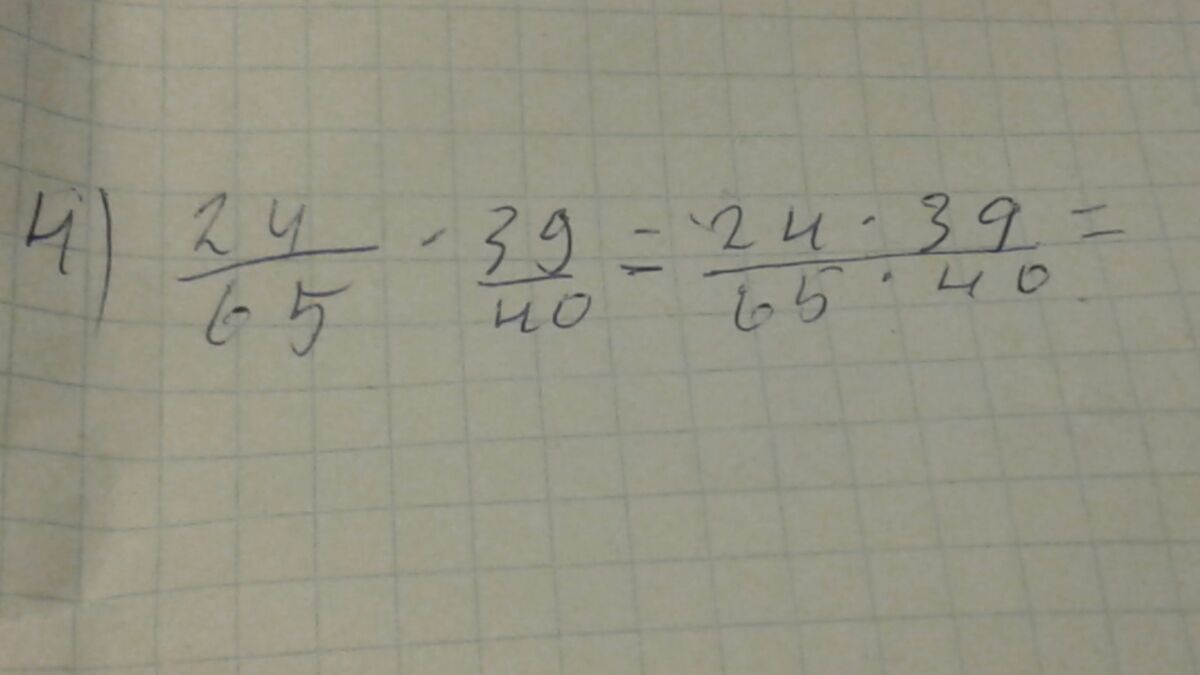 4) 24/65 · 39/40 = 24 · 39 / 65 · 40 =